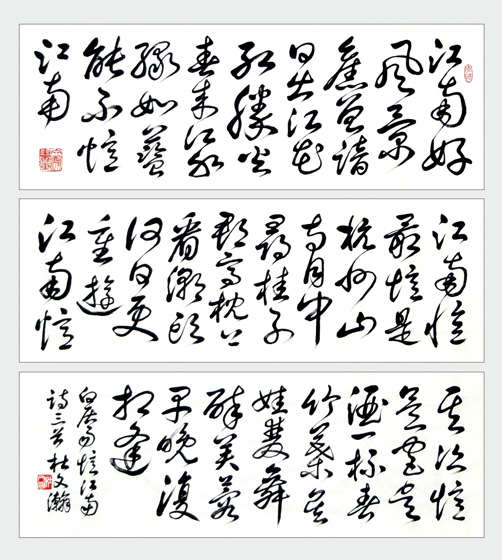 江南好
風景
舊曾諳
日出江花
紅勝火
春来江水
緑如藍
能不憶
江南
江南憶
最憶是
杭州山
寺月中
尋桂子
郡亭枕上
看潮頭
何日更
重遊
江南憶
其次憶
吳宮吳
酒一杯春
竹葉吳
娃雙舞
醉芙蓉
早晚復
相逢
白居易憶江南
詩三首 杜文瀚